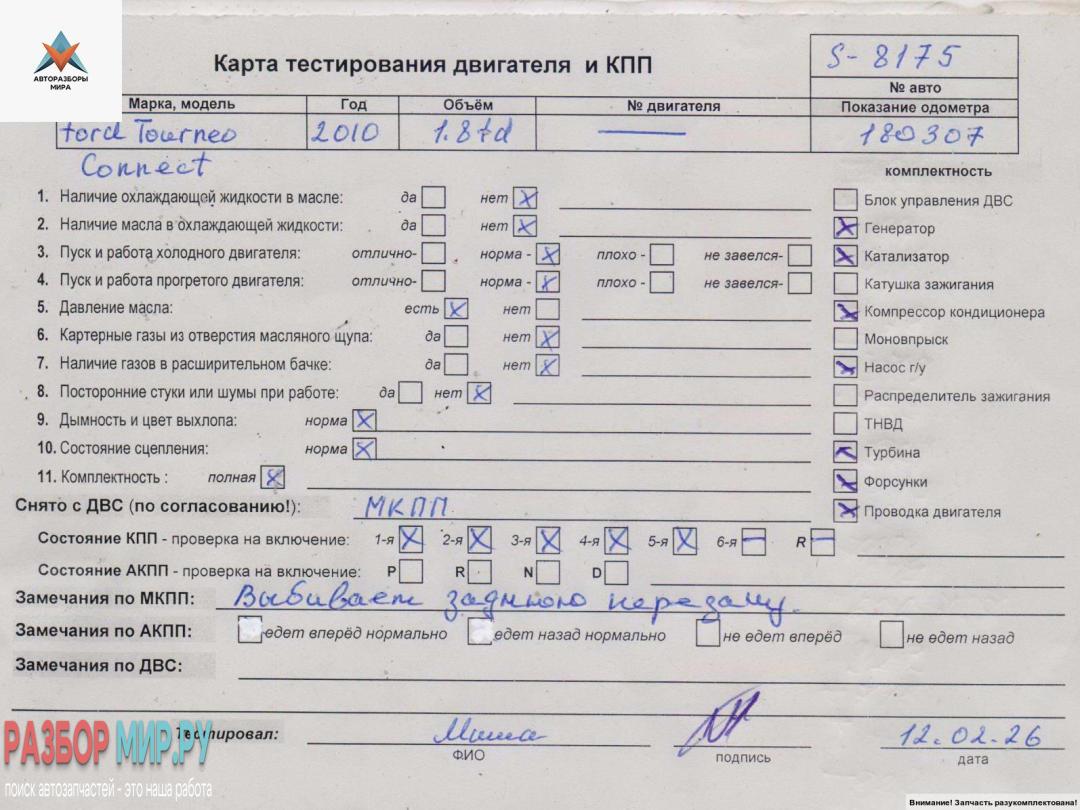 АВТОРАЗБОРЫ
МИРА
Карта тестирования двигателя и КПП
S-8175
№ авто
Марка, модель Год Объём № двигателя Показание одометра
Ford Tourneo 2010 1.8td — 180307
Connect
комплектность
1. Наличие охлаждающей жидкости в масле: да нет
Блок управления ДВС
2. Наличие масла в охлаждающей жидкости: да нет
Генератор
3. Пуск и работа холодного двигателя: отлично- норма - плохо - не завелся-
Катализатор
4. Пуск и работа прогретого двигателя: отлично- норма - плохо - не завелся-
Катушка зажигания
5. Давление масла: есть нет
Компрессор кондиционера
6. Картерные газы из отверстия масляного щупа: да нет
Моновпрыск
7. Наличие газов в расширительном бачке: да нет
Насос г/у
8. Посторонние стуки или шумы при работе: да нет
Распределитель зажигания
9. Дымность и цвет выхлопа: норма
ТНВД
10. Состояние сцепления: норма
Турбина
11. Комплектность : полная
Форсунки
Снято с ДВС (по согласованию!): МКПП
Проводка двигателя
Состояние КПП - проверка на включение: 1-я 2-я 3-я 4-я 5-я 6-я R
Состояние АКПП - проверка на включение: P R N D
Замечания по МКПП: Выбивает заднюю передачу.
Замечания по АКПП: едет вперёд нормально едет назад нормально не едет вперёд не едет назад
Замечания по ДВС:
Тестировал: Миша 12.02.26
ФИО подпись дата
РАЗБОР МИР.РУ
поиск автозапчастей - это наша работа
Внимание! Запчасть разукомплектована!